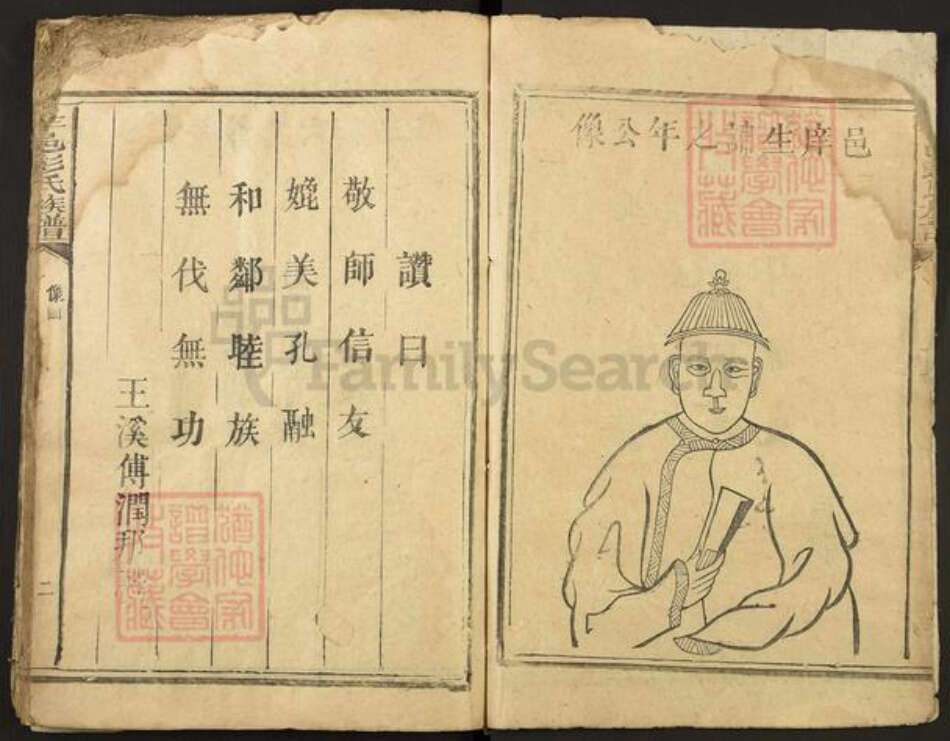 邑庠生謙之年公像
讚曰
敬師信友
媲美孔融
和鄰睦族
無伐無功
王溪傅潤邦
邑彭氏族譜
像圖
二
FamilySearch